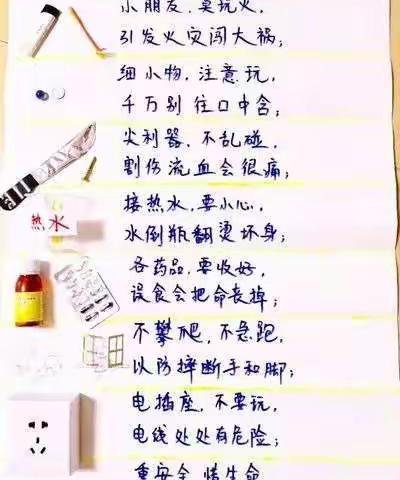 小朋友,莫玩火,
引发火灾闯大祸;
细小物,注意玩,
千万别往口中含;
尖利器,不乱碰,
割伤流血会很痛;
热水
接热水,要小心,
水倒瓶翻烫坏身;
各药品,要收好,
误食会把命丧掉;
不攀爬,不急跑,
以防摔断手和脚;
电插座,不要玩,
电线处处有危险;
重安全 惜生命